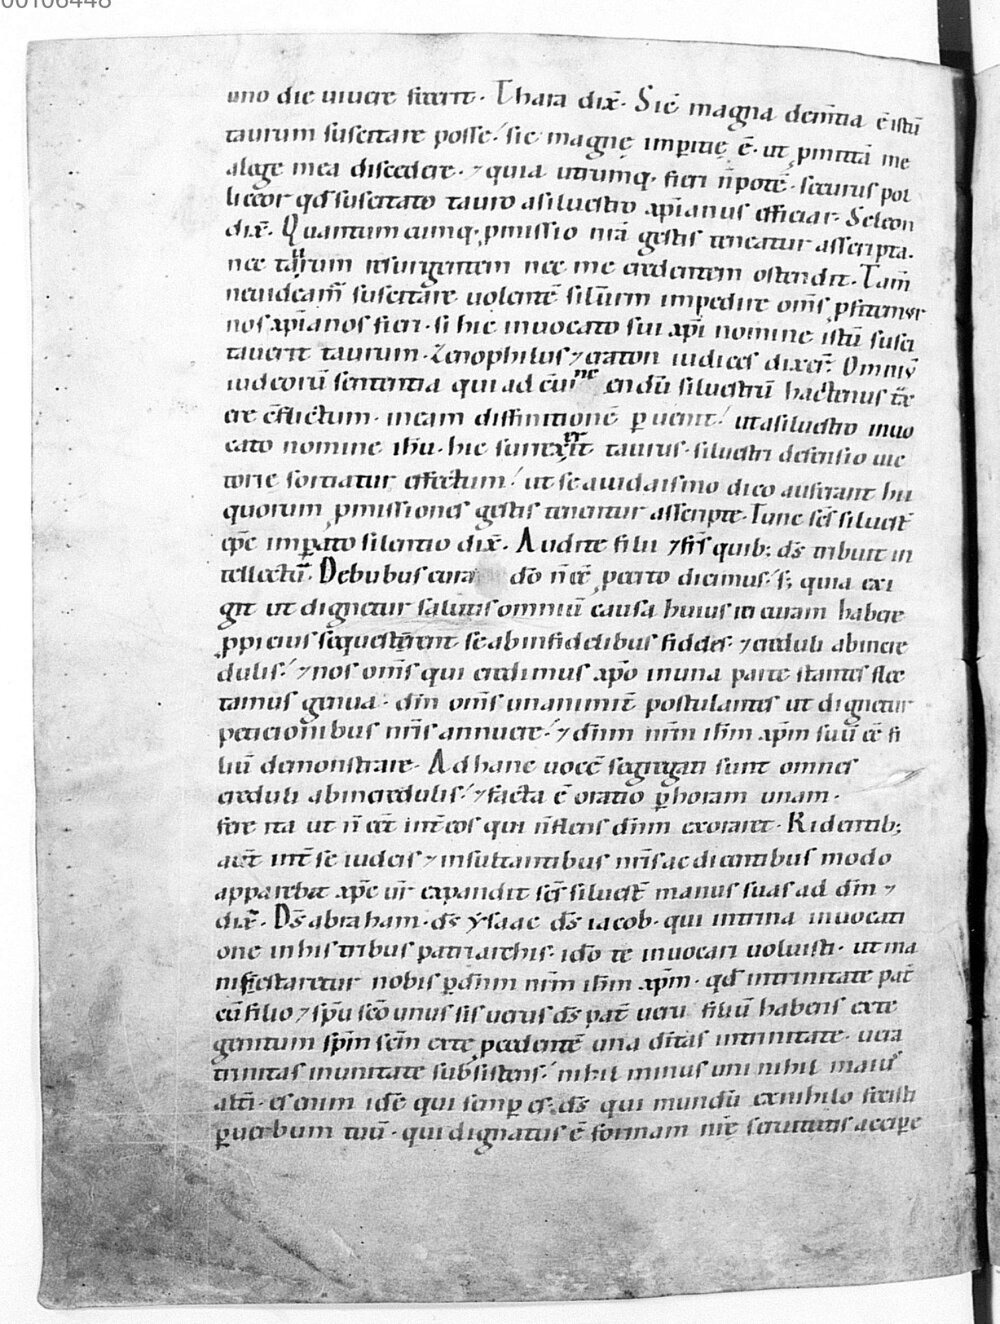 00106448
uno die uiuere fecerit. Thara dix̄. Sic̄ magna dem̄tia ē istū
taurum suscitare posse. sic magnę imp̲itię ē. ut p̲mittā me
alege mea discedere. ⁊ quia utrumq. fieri n̄ potē. securus pol
liceor qđ suscitato tauro asiluestro xp̄ianus efficiar. Seleon
dix̄. Quantum cumq. p̲missio nr̄a gestis teneatur asscripta.
nec taurum resurgentem nec me credentem ostendit. Tam̄
neuideam̄ suscitare uolentē silūm impedire om̄s p̲fitemur
nos xp̄ianos fieri. si hic inuocato sui xp̄i nomine istū susci
tauerit taurum. Zenophilus ⁊ craton iudices dixer̄. Omniū
iudeorū sententia qui ad endū siluestrū hactenus
ere c̄flictum. in eam diffinitionē p̲uenit. ut asiluestro inuo
cato nomine ih̄u. hic surrexerit taurus. siluestri defensio uic
torię sortiatur effectum. ut se auidaismo dico auferant hii
quorum p̲missiones gestis tenentur asscriptę. Tunc sc̄s siluest̄
ep̄c imp̲ato silentio dix̄. Audite filii ⁊ fr̄s quib; d̄s tribuit in
tellectū. De bubus cura d̄o n̄ eē p̲certo dicimus. s; quia exi
git ut dignetur salutis omniū causa huius rei curam habere
p̲pi eius sequestrent se ab infidelibus fideles. ⁊ creduli ab incre
dulis. ⁊ nos om̄s qui credimus xp̄o in una parte stantes flec
tamus genua. dn̄m om̄s unanimit̄ postulantes ut dignetur
peticionibus nr̄is annuere. ⁊ dn̄m nr̄m ih̄m xp̄m suū eē fi
liū demonstrare. Ad hanc uocē segregati sunt omnes
creduli ab incredulis. ⁊ facta ē oratio p̲ horam unam.
fere ita ut n̄ eēt int̄ eos qui n̄ flens dn̄m exoraret. Ridentib;
aut̄ int̄ se iudeis ⁊ insultantibus nr̄is ac dicentibus modo
apparebit xp̄c ur̄ expandit sc̄s siluest̄ manus suas ad dn̄m ⁊
dix̄. D̄s abraham. d̄s ysaac d̄s iacob. qui intrina inuocati
one in his tribus patriarchis. id̄o te inuocari uoluisti. ut ma
nifestaretur nobis p̲ dn̄m nr̄m ih̄m xp̄m. qđ intrinitate pat̄
cū filio ⁊ sp̄u sc̄o unus sis uerus d̄s pat̄ ueru filiū habens exte
genitum sp̄m sc̄m exte p̲cedentē una d̄itas intrinitate. uera
trinitas inunitate subsistens. nihil minus uni nihil maius
alt̄i. es enim idē qui semp̲ es. d̄s qui mundū exnihilo fecisti
p̲ uerbum tuū. qui dignatus ē formam nr̄ę seruitutis accipere